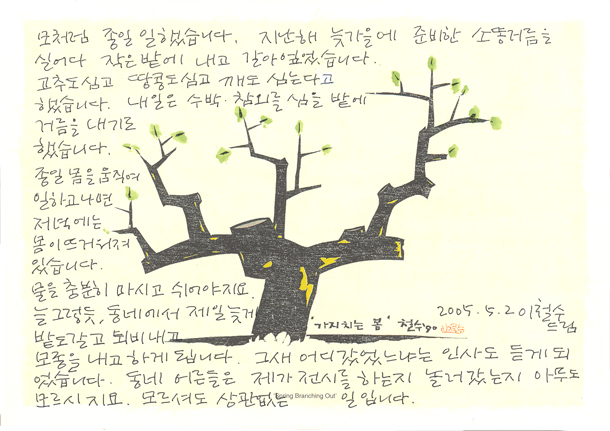 모처럼 종일 일했습니다. 지난해 늦가을에 준비한 소똥거름을
실어다 작은 밭에 내고 갈아엎었습니다.
고추도심고 땅콩도심고 깨도 심는다고
했습니다. 내일은 수박·참외를 심을 밭에
거름을 내기로
했습니다.
종일 몸을 움직여
일하고나면
저녁에는
몸이뜨거워져
있습니다.
물을 충분히 마시고 쉬어야지요.
늘 그렇듯, 동네에서 제일늦게
밭도갈고 퇴비내고
모종을 내고 하게 됩니다. 그새 어디갔었느냐는 인사도 듣게 되
었습니다. 동네 어른들은 제가 전시를 하는지 놀러 갔는지 아무도
모르시지요. 모르셔도 상관없는 일입니다.
'가지치는 봄' 철수 '90
2005.5.2 이철수
드림
'Spring Branching Out'